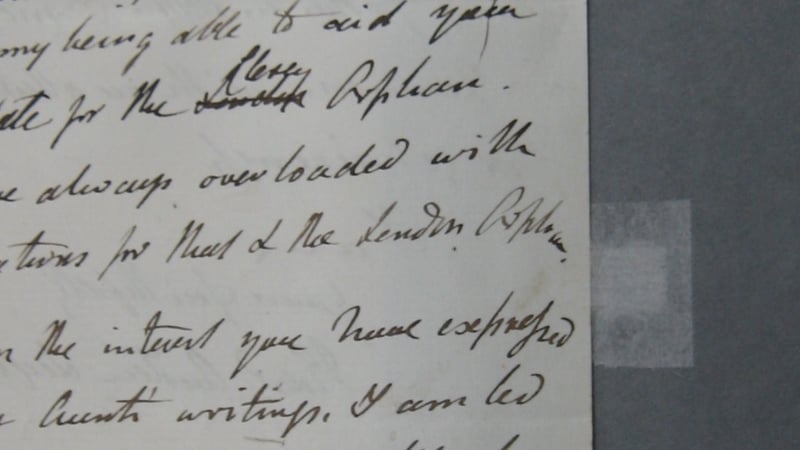 my being able to aid your
for the Clergy London Orphan.
always overloaded with
for that & the London Orphan.
the interest you have expressed
Aunt's writings. I am led